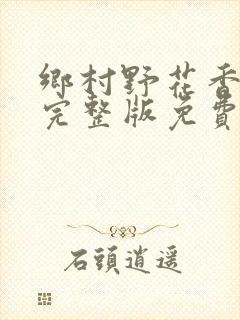 鄉村野花香
完整版免費
石頭逍遥